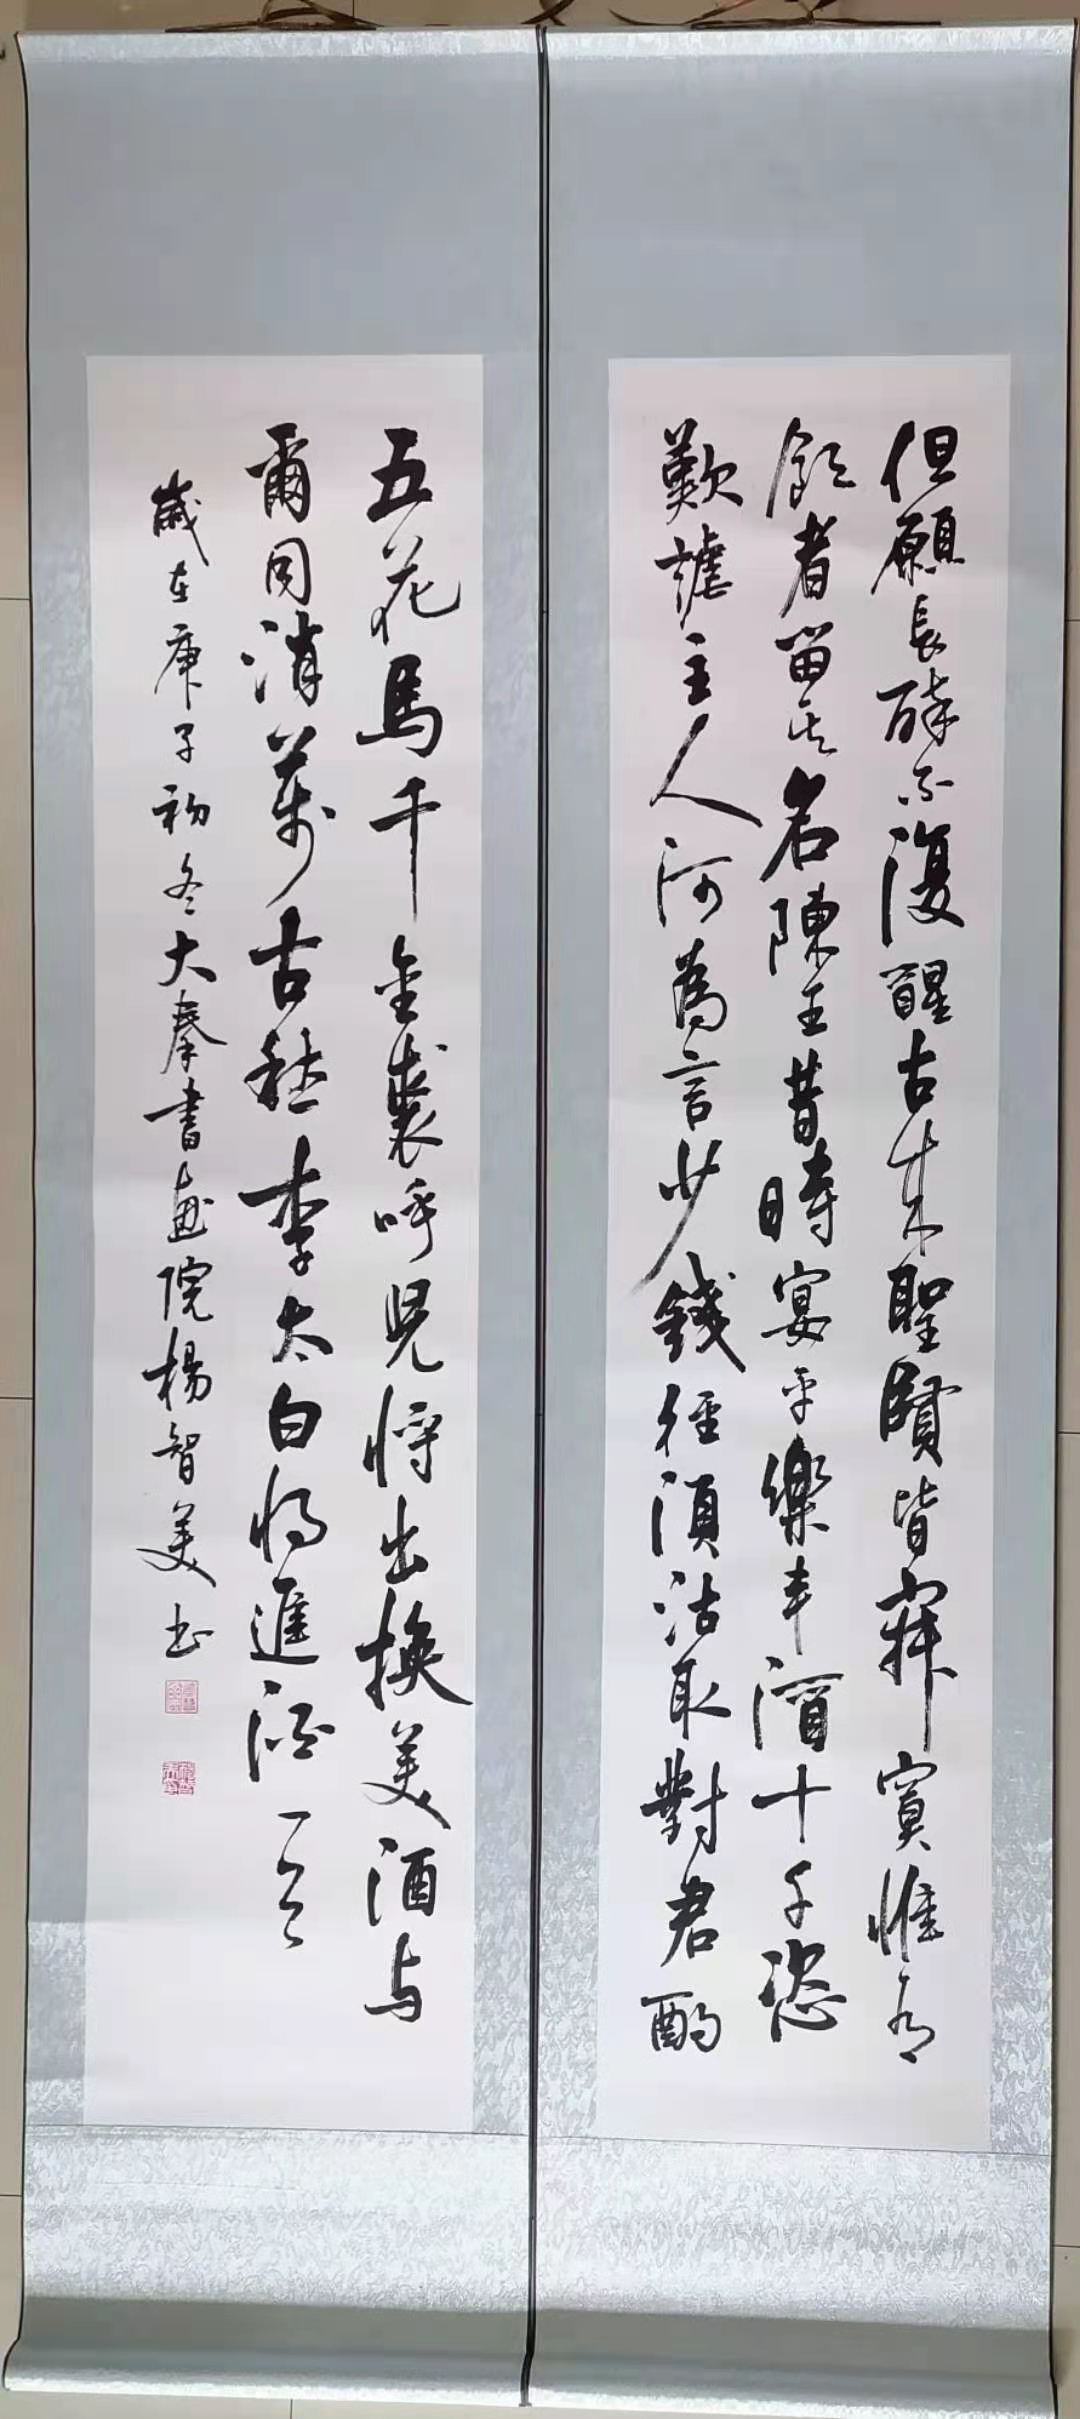 但願長醉不復醒古來聖賢皆寂寞惟有
飲者留其名陳王昔時宴平樂斗酒十千恣
歡謔主人何為言少錢徑須沽取對君酌
五花馬千金裘呼兒將出換美酒与
爾同消萬古愁李太白將進酒一首
歲在庚子初冬大秦書画院楊智美书